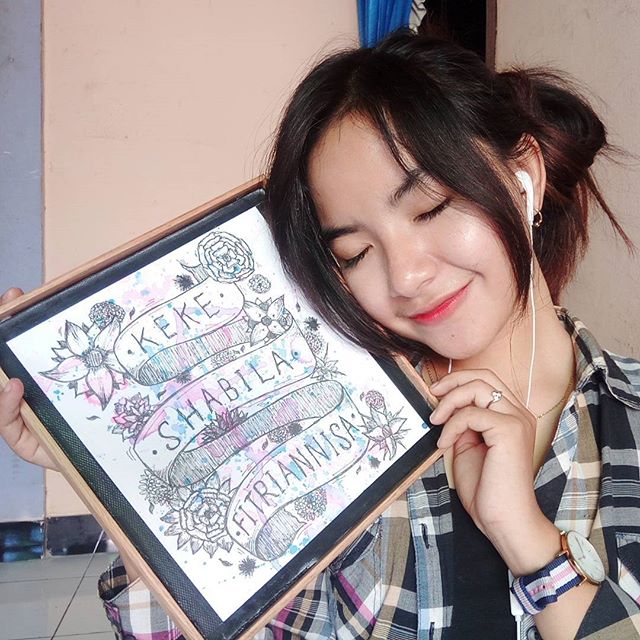 KEKE
SHABILA
FITRIANNISA